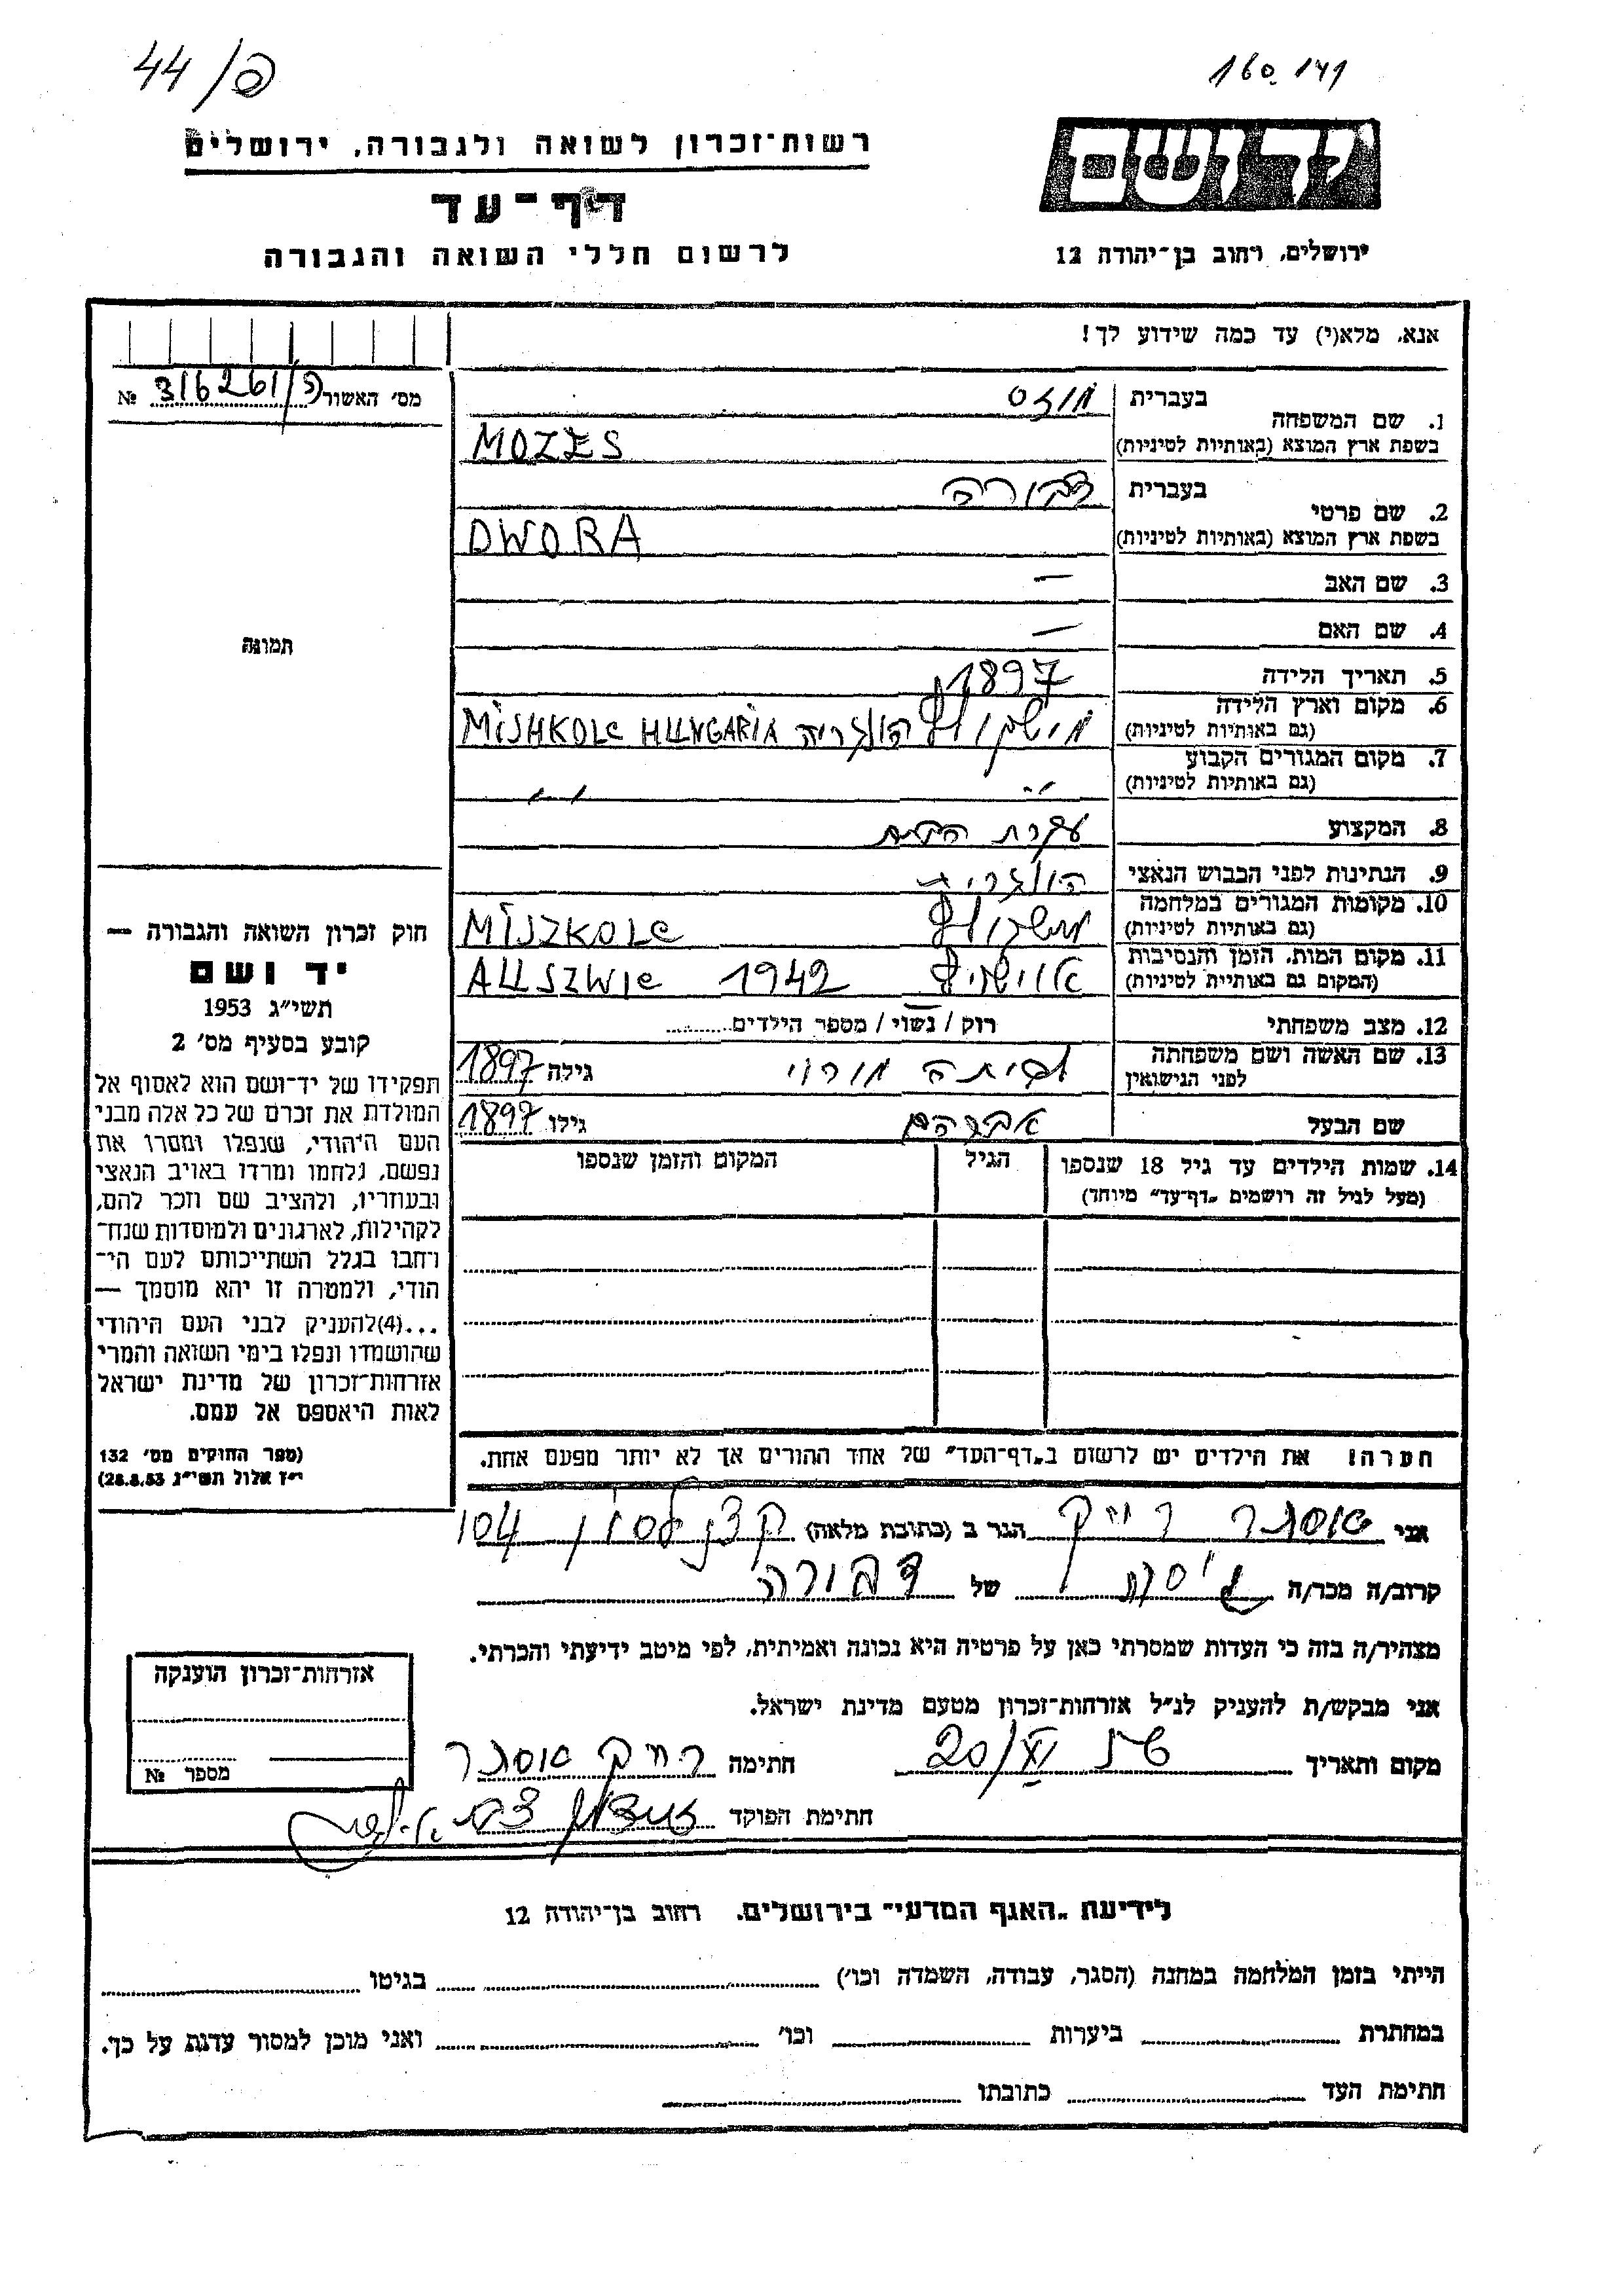 44/פ
160.141
רשות־זכרון לשואה ולגבורה, ירושלים
ידושם
דף־עד
לרשום חללי השואה והגבורה
ירושלים, רחוב בן־יהודה 12
אנא, מלא(י) עד כמה שידוע לך!
מס׳ האשור 316261/פ №
1. שם המשפחה
בעברית מוזס
בשפת ארץ המוצא (באותיות לטיניות) MOZES
2. שם פרטי
בעברית דבורה
בשפת ארץ המוצא (באותיות לטיניות) DWORA
3. שם האב —
4. שם האם —
5. תאריך הלידה 1897
6. מקום וארץ הלידה
(גם באותיות לטיניות) מישקולץ הונגריה MiSHKOLc HUNGARIA
7. מקום המגורים הקבוע
(גם באותיות לטיניות) ״ ״
8. המקצוע עקרת הבית
9. הנתינות לפני הכבוש הנאצי הונגרית
10. מקומות המגורים במלחמה
(גם באותיות לטיניות) מישקולץ MiSZKOLc
11. מקום המות, הזמן והנסיבות
(המקום גם באותיית לטיניות) אוישויץ 1942 AUSZWic
12. מצב משפחתי רוק / נשוי / מספר הילדים
13. שם האשה ושם משפחתה
לפני הנישואין לבית גילה 1897
שם הבעל אברהם גילו 1897
14. שמות הילדים עד גיל 18 שנספו
(מעל לגיל זה רושמים „דף־עד״ מיוחד)
הגיל
המקום והזמן שנספו
הערה! את הילדים יש לרשום ב„דף־העד״ של אחד ההורים אך לא יותר מפעם אחת.
תמונה
חוק זכרון השואה והגבורה —
יד ושם
תשי״ג 1953
קובע בסעיף מס׳ 2
תפקידו של יד־ושם הוא לאסוף אל
המולדת את זכרם של כל אלה מבני
העם היהודי, שנפלו ומסרו את
נפשם, נלחמו ומרדו באויב הנאצי
ובעוזריו, ולהציב שם וזכר להם,
לקהילות, לארגונים ולמוסדות שנח־
רחבו בגלל השתייכותם לעם הי־
הודי, ולמטרה זו יהא מוסמך —
...(4)להעניק לבני העם היהודי
שהושמדו ונפלו בימי השואה והמרי
אזרחות־זכרון של מדינת ישראל
לאות היאספם אל עמם.
(ספר החוקים מס׳ 132
י״ז אלול תשי״ג 28.8.53)
אני אסתר הגר ב (כתובת מלאה) 104
קרוב/ה מכר/ה גיסת של דבורה
מצהיר/ה בזה כי העדות שמסרתי כאן על פרטיה היא נכונה ואמיתית, לפי מיטב ידיעתי והכרתי.
אני מבקש/ת להעניק לנ״ל אזרחות־זכרון מטעם מדינת ישראל.
מקום ותאריך 20/ חתימה אסתר
חתימת הפוקד
אזרחות־זכרון הוענקה
מספר №
לידיעת „האגף המדעי״ בירושלים. רחוב בן־יהודה 12
הייתי בזמן המלחמה במחנה (הסגר, עבודה, השמדה וכו׳) בגיטו
במחתרת ביערות וכו׳ ואני מוכן למסור עדות על כך.
חתימת העד כתובתו